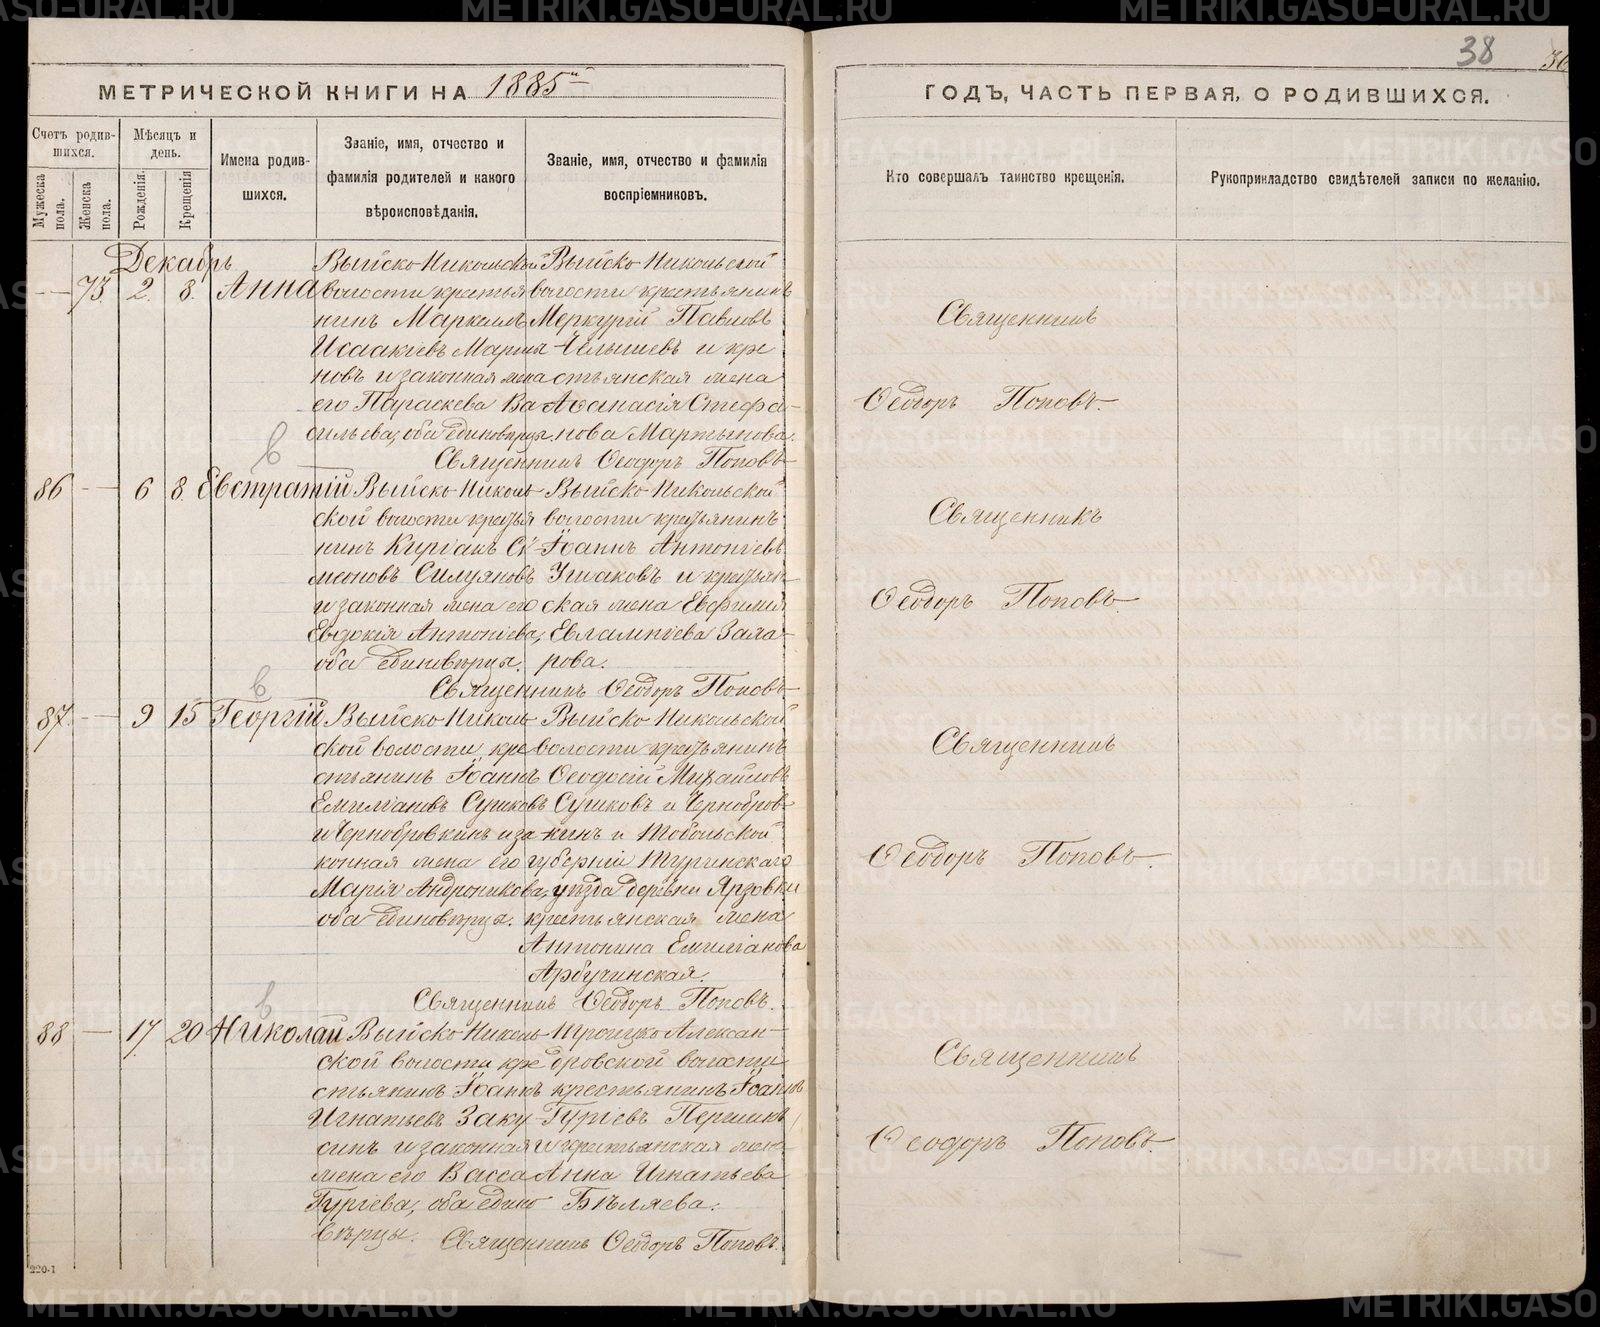 38
МЕТРИЧЕСКОЙ КНИГИ НА 1885й
ГОДЪ, ЧАСТЬ ПЕРВАЯ, О РОДИВШИХСЯ.
Счетъ родив-
шихся.
Мужеска
пола.
Женска
пола.
Мѣсяцъ и
день.
Рожденія.
Крещенія
Имена родив-
шихся.
Званіе, имя, отчество и
фамилія родителей и какого
вѣроисповѣданія.
Званіе, имя, отчество и фамилія
воспріемниковъ.
Кто совершалъ таинство крещенія.
Рукоприкладство свидѣтелей записи по желанію.
Декабрь
73. 2. 8. Анна
Выйско-Никольской
волости крестья
нинъ Маркеллъ
Исаакіевъ Мартья
новъ и законная жена
его Параскева Ва
сильева, оба единоверцы.
Выйско-Никольской
волости крестьянинъ
Меркурій Павловъ
Челышевъ и кре
стьянская жена
Аѳанасія Стефа-
нова Мартынова.
Священникъ Ѳеодоръ Поповъ
Священникъ
Ѳеодоръ Поповъ.
86 — 6 8. Евстратій
Выйско-Николь
ской волости крестья
нинъ Киріакъ Си-
меоновъ Силуяновъ
и законная жена его
Евдокія Антоніева,
оба единоверцы.
Выйско-Никольской
волости крестьянинъ
Іоаннъ Антоніевъ
Ушаковъ и крестьян-
ская жена Евфимія
Евлампіева Заха-
рова.
Священникъ Ѳеодоръ Поповъ
Священникъ
Ѳеодоръ Поповъ.
87. — 9 15 Георгій
Выйско-Николь
ской волости кре
стьянинъ Іоаннъ
Емиліановъ Сушковъ
и Чернобровкинъ и за
конная жена его
Марія Андроникова,
оба единоверцы.
Выйско-Никольской
волости крестьянинъ
Ѳеодосій Михайловъ
Сушковъ и Чернобров-
кинъ и Тобольской
губерніи Туринскаго
уѣзда деревни Ярзовки
крестьянская жена
Антонина Емиліанова
Арбучинская.
Священникъ Ѳеодоръ Поповъ.
Священникъ
Ѳеодоръ Поповъ.
88 — 17. 20 Николай
Выйско-Николь
ской волости кре
стьянинъ Іоаннъ
Игнатьевъ Заку-
синъ и законная
жена его Васса
Гуріева, оба едино
верцы.
Троицко-Алексан-
дровской волости
крестьянинъ Іоаннъ
Гуріевъ Першинъ
и крестьянская жена
Анна Игнатьева
Бѣляева.
Священникъ Ѳеодоръ Поповъ.
Священникъ
Ѳеодоръ Поповъ.
220-1
METRIKI.GASO-URAL.RU